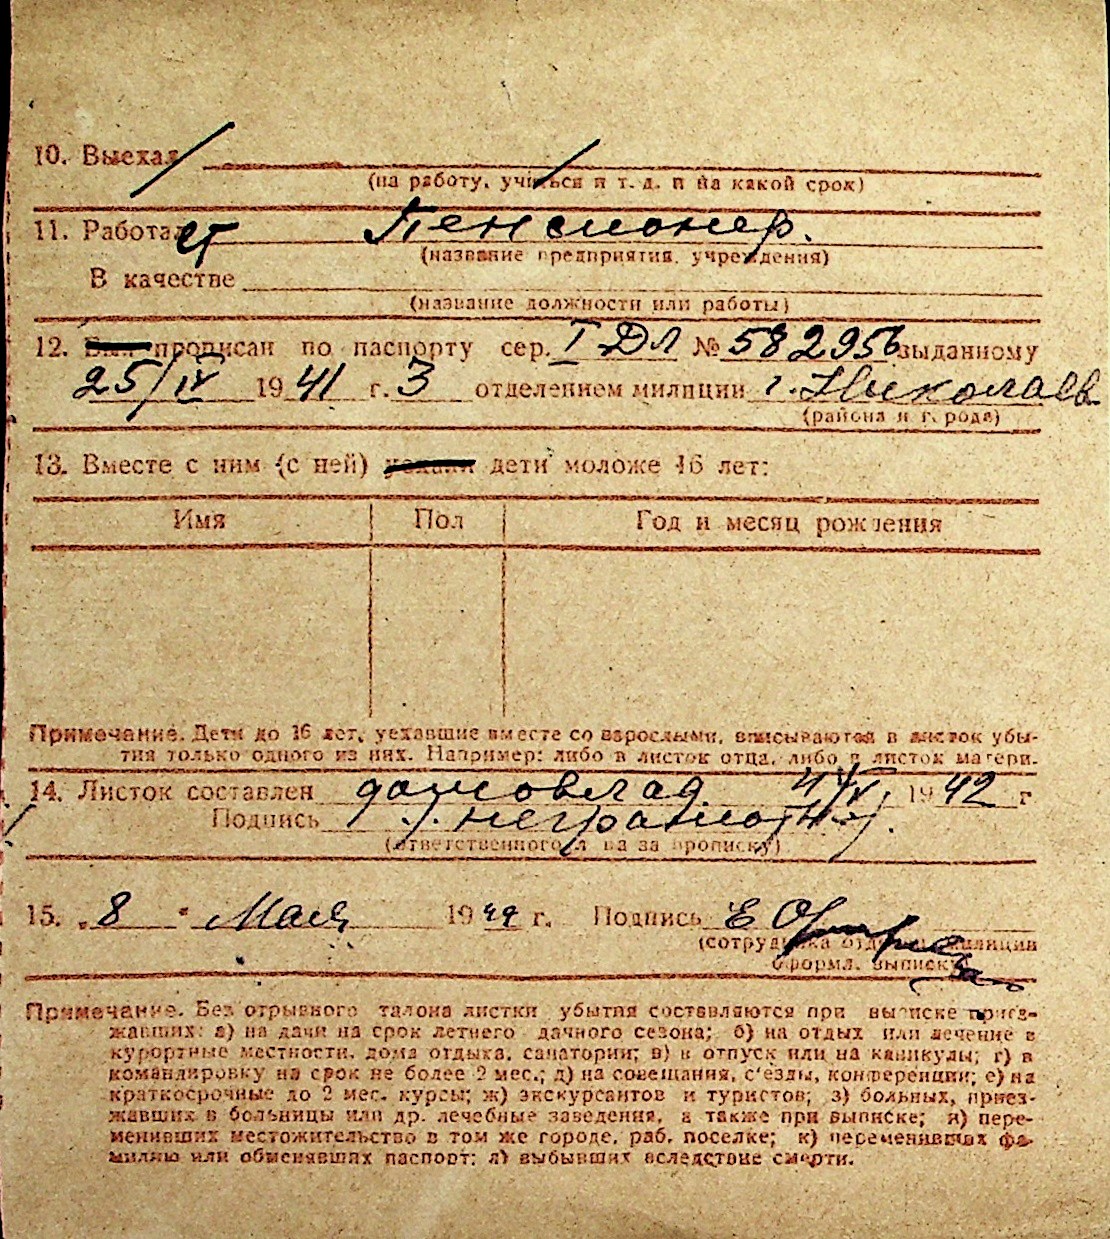 10. Выехал
(на работу, учиться и т. д. и на какой срок)
11. Работает Пенсионер.
(название предприятия, учреждения)
В качестве
(название должности или работы)
12. Был прописан по паспорту сер. I ДЛ № 582956 выданному
25/IV 1941 г. 3 отделением милиции г. Николаев
(района и города)
13. Вместе с ним (с ней) уехали дети моложе 16 лет:
Имя Пол Год и месяц рождения
Примечание. Дети до 16 лет, уехавшие вместе со взрослыми, вписываются в листок убы-
тия только одного из них. Например: либо в листок отца, либо в листок матери.
14. Листок составлен домовлад. 1942 г
Подпись неграмотн.
(ответственного л ца за прописку)
15. „8 “ Мая 1942 г. Подпись Е
(сотрудника отдела милиции
оформл. выписку)
Примечание. Без отрывного талона листки убытия составляются при выписке приез-
жавших: а) на дачи на срок летнего дачного сезона; б) на отдых или лечение в
курортные местности, дома отдыха, санатории; в) в отпуск или на каникулы; г) в
командировку на срок не более 2 мес.; д) на совещания, с'езды, конференции; е) на
краткосрочные до 2 мес. курсы; ж) экскурсантов и туристов; з) больных, приез-
жавших в больницы или др. лечебные заведения, а также при выписке; и) пере-
менивших местожительство в том же городе, раб. поселке; к) переменивших фа-
милию или обменявших паспорт; л) выбывших вследствие смерти.